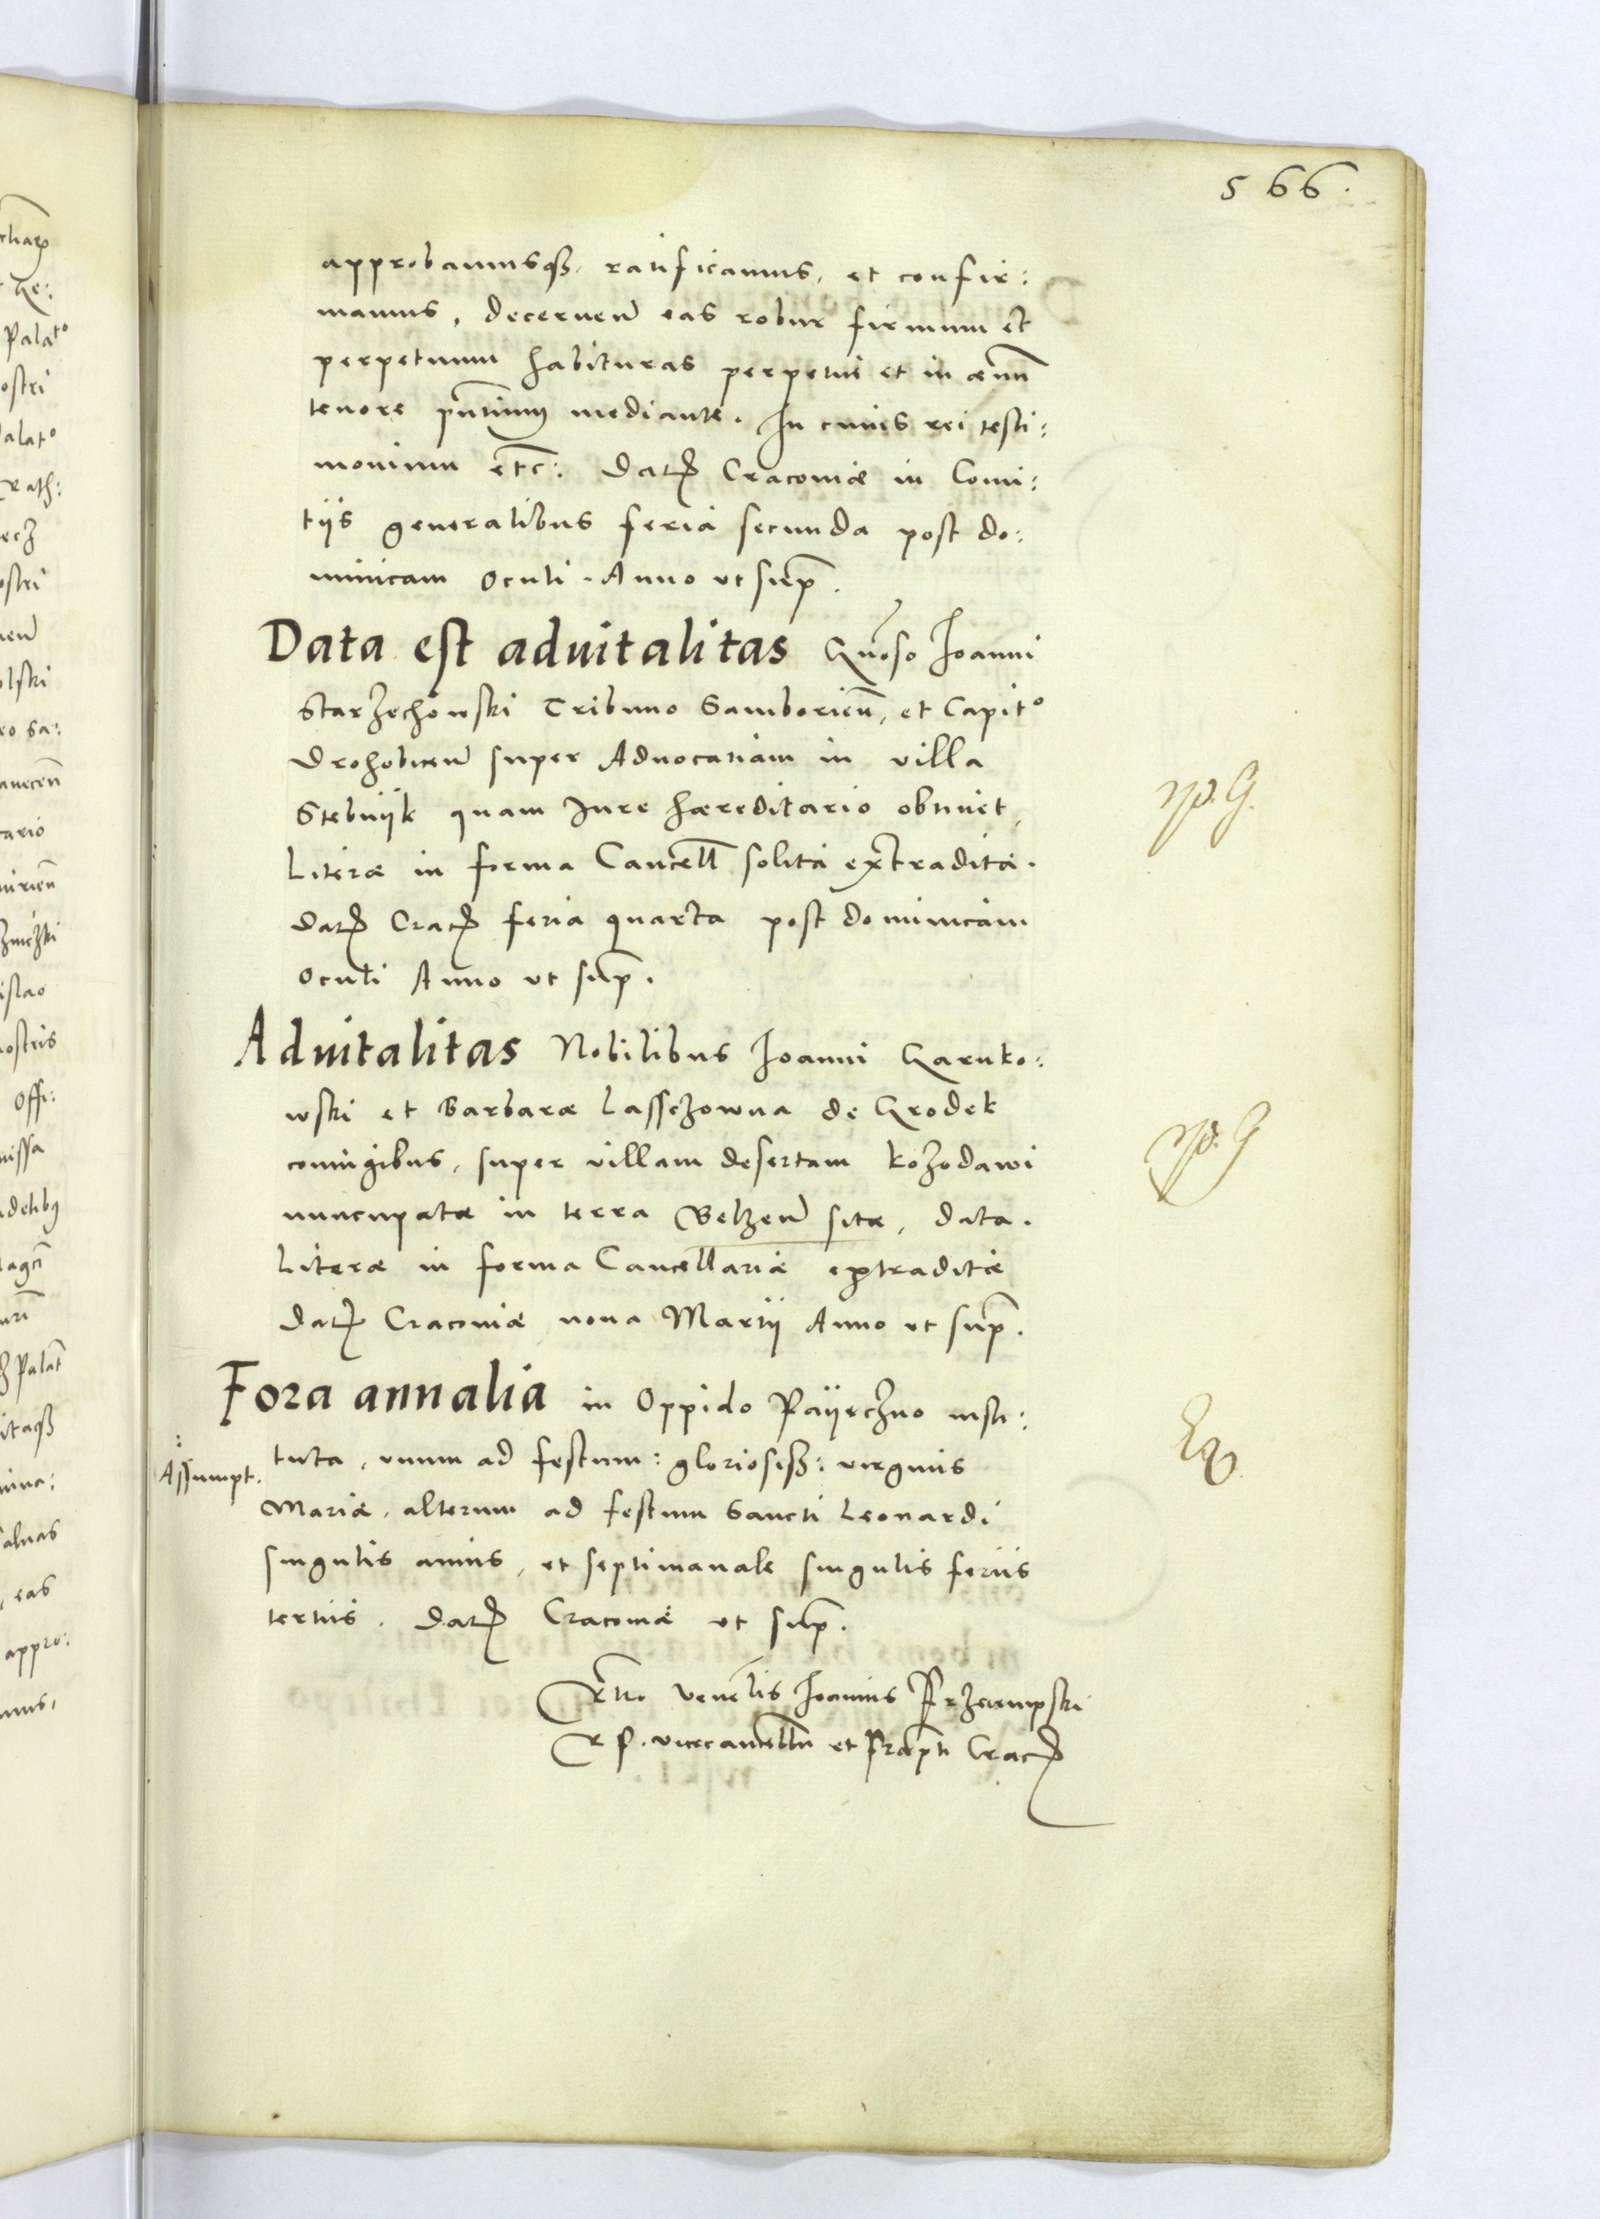 566.
approbamusqß, ratificamus, et confir:
mamus, decernen̄ eas robur firmum et
perpetuum habituras perpetue et in aeuū
tenore pn̄tium mediante. In cuius rei testi:
monium etc: Dat Cracoviæ in Comi:
tiis generalibus feria secunda post do:
minicam Oculi. Anno ut sup̄.
Data est advitalitas Gn̄oso Ioanni
Starzechowski Tribuno Samborień, et Capit°
Drohobicen̄ super Advocatiam in villa
Stebnÿk quam Jure hæreditario obtinet,
Literæ in forma Cancell solita extraditæ.
Dat Crac feria quarta post dominicam
Oculi Anno ut sup̄.
Advitalitas Nobilibus Ioanni Garnko:
wski et Barbaræ Lassczowna de Grodek
coniugibus, super villam desertam Kozodawi
nuncupatæ in terra Belzen̄ sitæ, data.
Literæ in forma Cancellariæ extraditæ
Dat Cracoviæ nona Martii Anno ut sup̄.
Fora annalia in Oppido Paÿeczno insti:
Assumpt. tuta, unum ad festum: gloriosiss: virginis
Mariæ, alterum ad festum Sancti Leonardi
singulis annis, et septimanale singulis feriis
tertiis. Dat Cracoviæ ut sup̄.
Rtio Venelis Ioannis Przerempski
R P. vicecancellrii et Præpti Crac